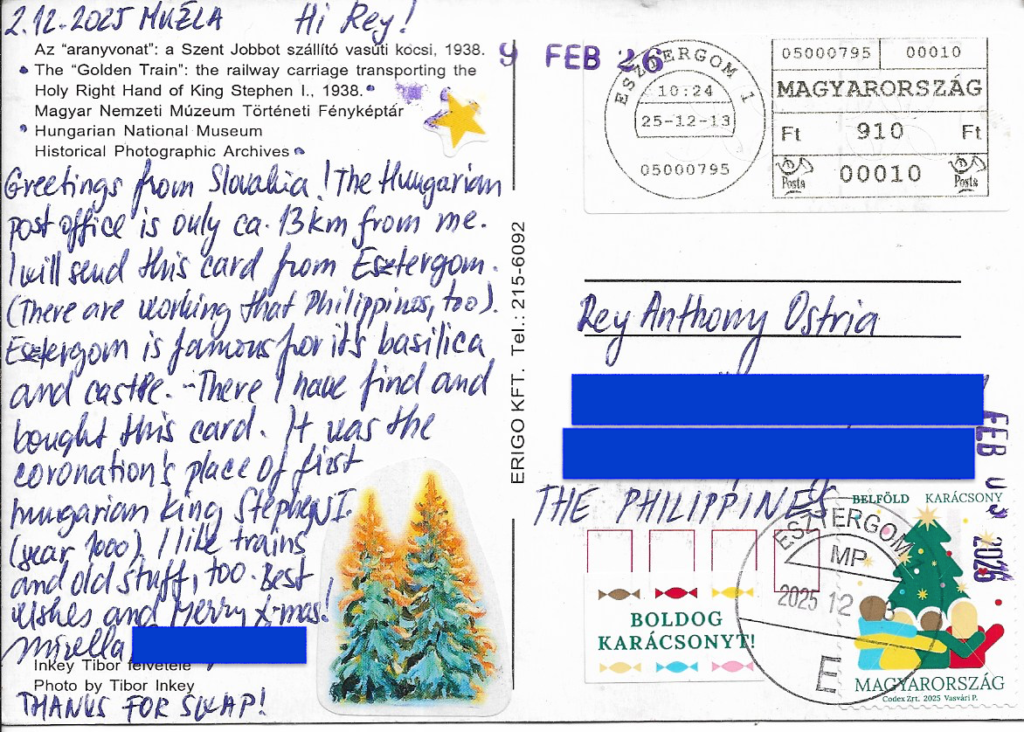 2.12.2025 MUŽLA Hi Rey!
Az "aranyvonat": a Szent Jobbot szállító vasúti kocsi, 1938.
The "Golden Train": the railway carriage transporting the
Holy Right Hand of King Stephen I., 1938.
Magyar Nemzeti Múzeum Történeti Fényképtár
Hungarian National Museum
Historical Photographic Archives
Greetings from Slovakia! The Hungarian
post office is only ca. 13 km from me.
I will send this card from Esztergom.
(There are working that Philippinos, too).
Esztergom is famous for it's basilica
and castle. - There I have find and
bought this card. It was the
coronation's place of first
hungarian king Stephen I.
(year 1000). I like trains
and old stuff, too. Best
wishes and merry X-mas!
Mirella
Inkey Tibor felvétele
Photo by Tibor Inkey
THANKS FOR SWAP!
ERIGO KFT. Tel.: 215-6092
9 FEB 26
ESZTERGOM 1
10:24
25-12-13
05000795
05000795 00010
MAGYARORSZÁG
Ft 910 Ft
Posta 00010 Posta
Rey Anthony Ostria
THE PHILIPPINES
FEB
2026
BOLDOG
KARÁCSONYT!
ESZTERGOM
MP
2025 12
E
BELFÖLD KARÁCSONY
MAGYARORSZÁG
Codex Zrt. 2025 Vasvári P.